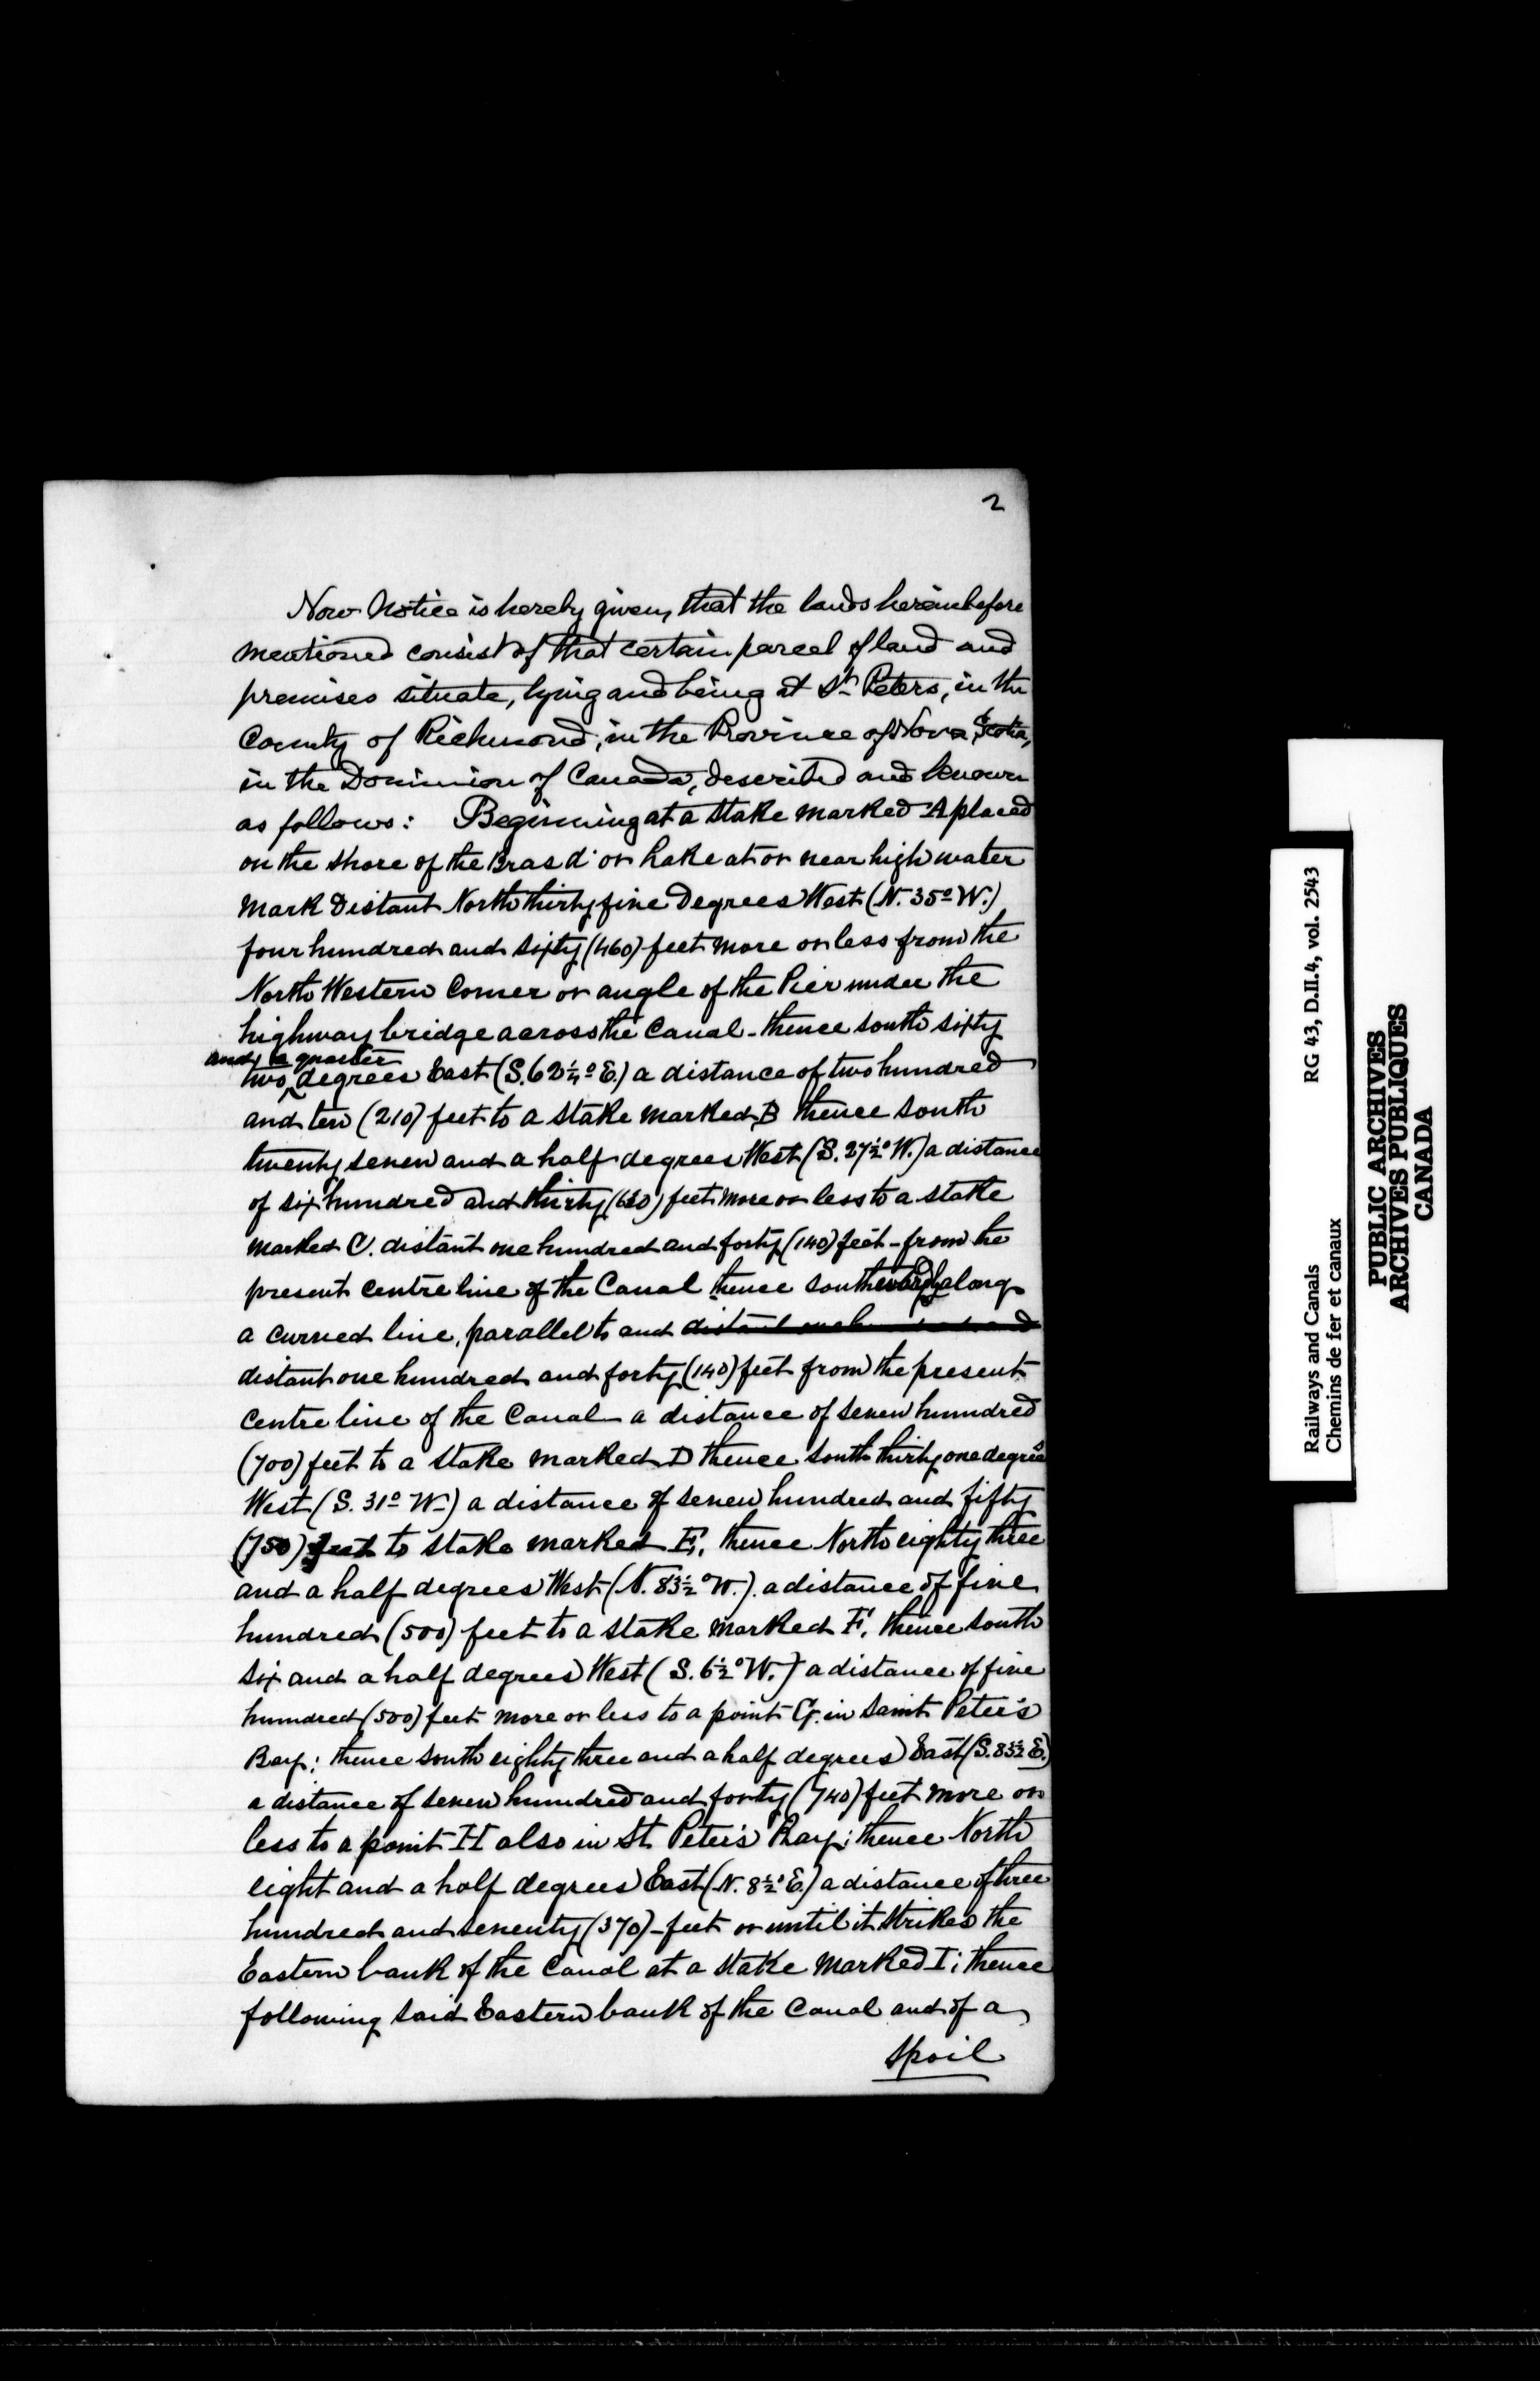 2
Now Notice is hereby given, that the lands hereinbefore
mentioned consist of that certain parcel of land and
premises situate, lying and being at St. Peters, in the
County of Richmond, in the Province of Nova Scotia,
in the Dominion of Canada, described and known
as follows: Beginning at a stake marked A placed
on the shore of the Bras d'or Lake at or near high water
mark distant North thirty five degrees West (N. 35° W.)
four hundred and sixty (460) feet more or less from the
North Western Corner or angle of the Pier under the
highway bridge across the Canal - thence south sixty
and a quarter
two degrees East (S. 62 1/4° E.) a distance of two hundred
and ten (210) feet to a stake marked B thence south
twenty seven and a half degrees West (S. 27 1/2° W.) a distance
of six hundred and thirty (630) feet more or less to a stake
marked C. distant one hundred and forty (140) feet - from the
present centre line of the Canal thence southwardly along
a curved line, parallel to and distant one hundred
distant one hundred and forty (140) feet from the present
centre line of the Canal a distance of seven hundred
(700) feet to a stake marked D thence south thirty one degrees
West (S. 31° W.) a distance of seven hundred and fifty
(750) feet to stake marked E, thence North eighty three
and a half degrees West (N. 83 1/2° W.) a distance of five
hundred (500) feet to a stake marked F, thence south
six and a half degrees West (S. 6 1/2° W.) a distance of five
hundred (500) feet more or less to a point G. in Saint Peter's
Bay; thence south eighty three and a half degrees East (S. 83 1/2 E.)
a distance of seven hundred and forty (740) feet more or
less to a point H also in St. Peter's Bay; thence North
eight and a half degrees East (N. 8 1/2° E.) a distance of three
hundred and seventy (370) - feet or until it strikes the
Eastern bank of the Canal at a stake marked I; thence
following said Eastern bank of the Canal and of a
spoil
Railways and Canals RG 43, D.II.4, vol. 2543
Chemins de fer et canaux
PUBLIC ARCHIVES
ARCHIVES PUBLIQUES
CANADA